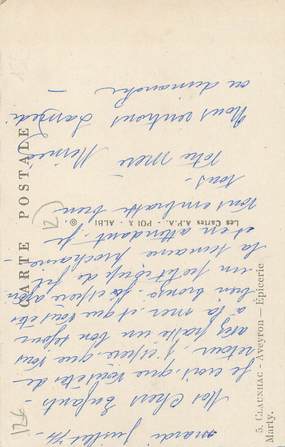 CARTE POSTALE
5. CLAUNHAC - Aveyron — Épicerie
Marty.
Les Cartes A.P.A. - POUX - ALBI
mardi juillet 74
Mes Chers Enfants -
Je vois que vous êtes de
retour, j'espère que vous
avez passé un bon séjour
à la mer et que vous êtes
bien
un petit de fil
la semaine prochaine
et en attendant je
vous embrasse bien
tous -
Votre mère
Nous rentrons samedi
ou dimanche -